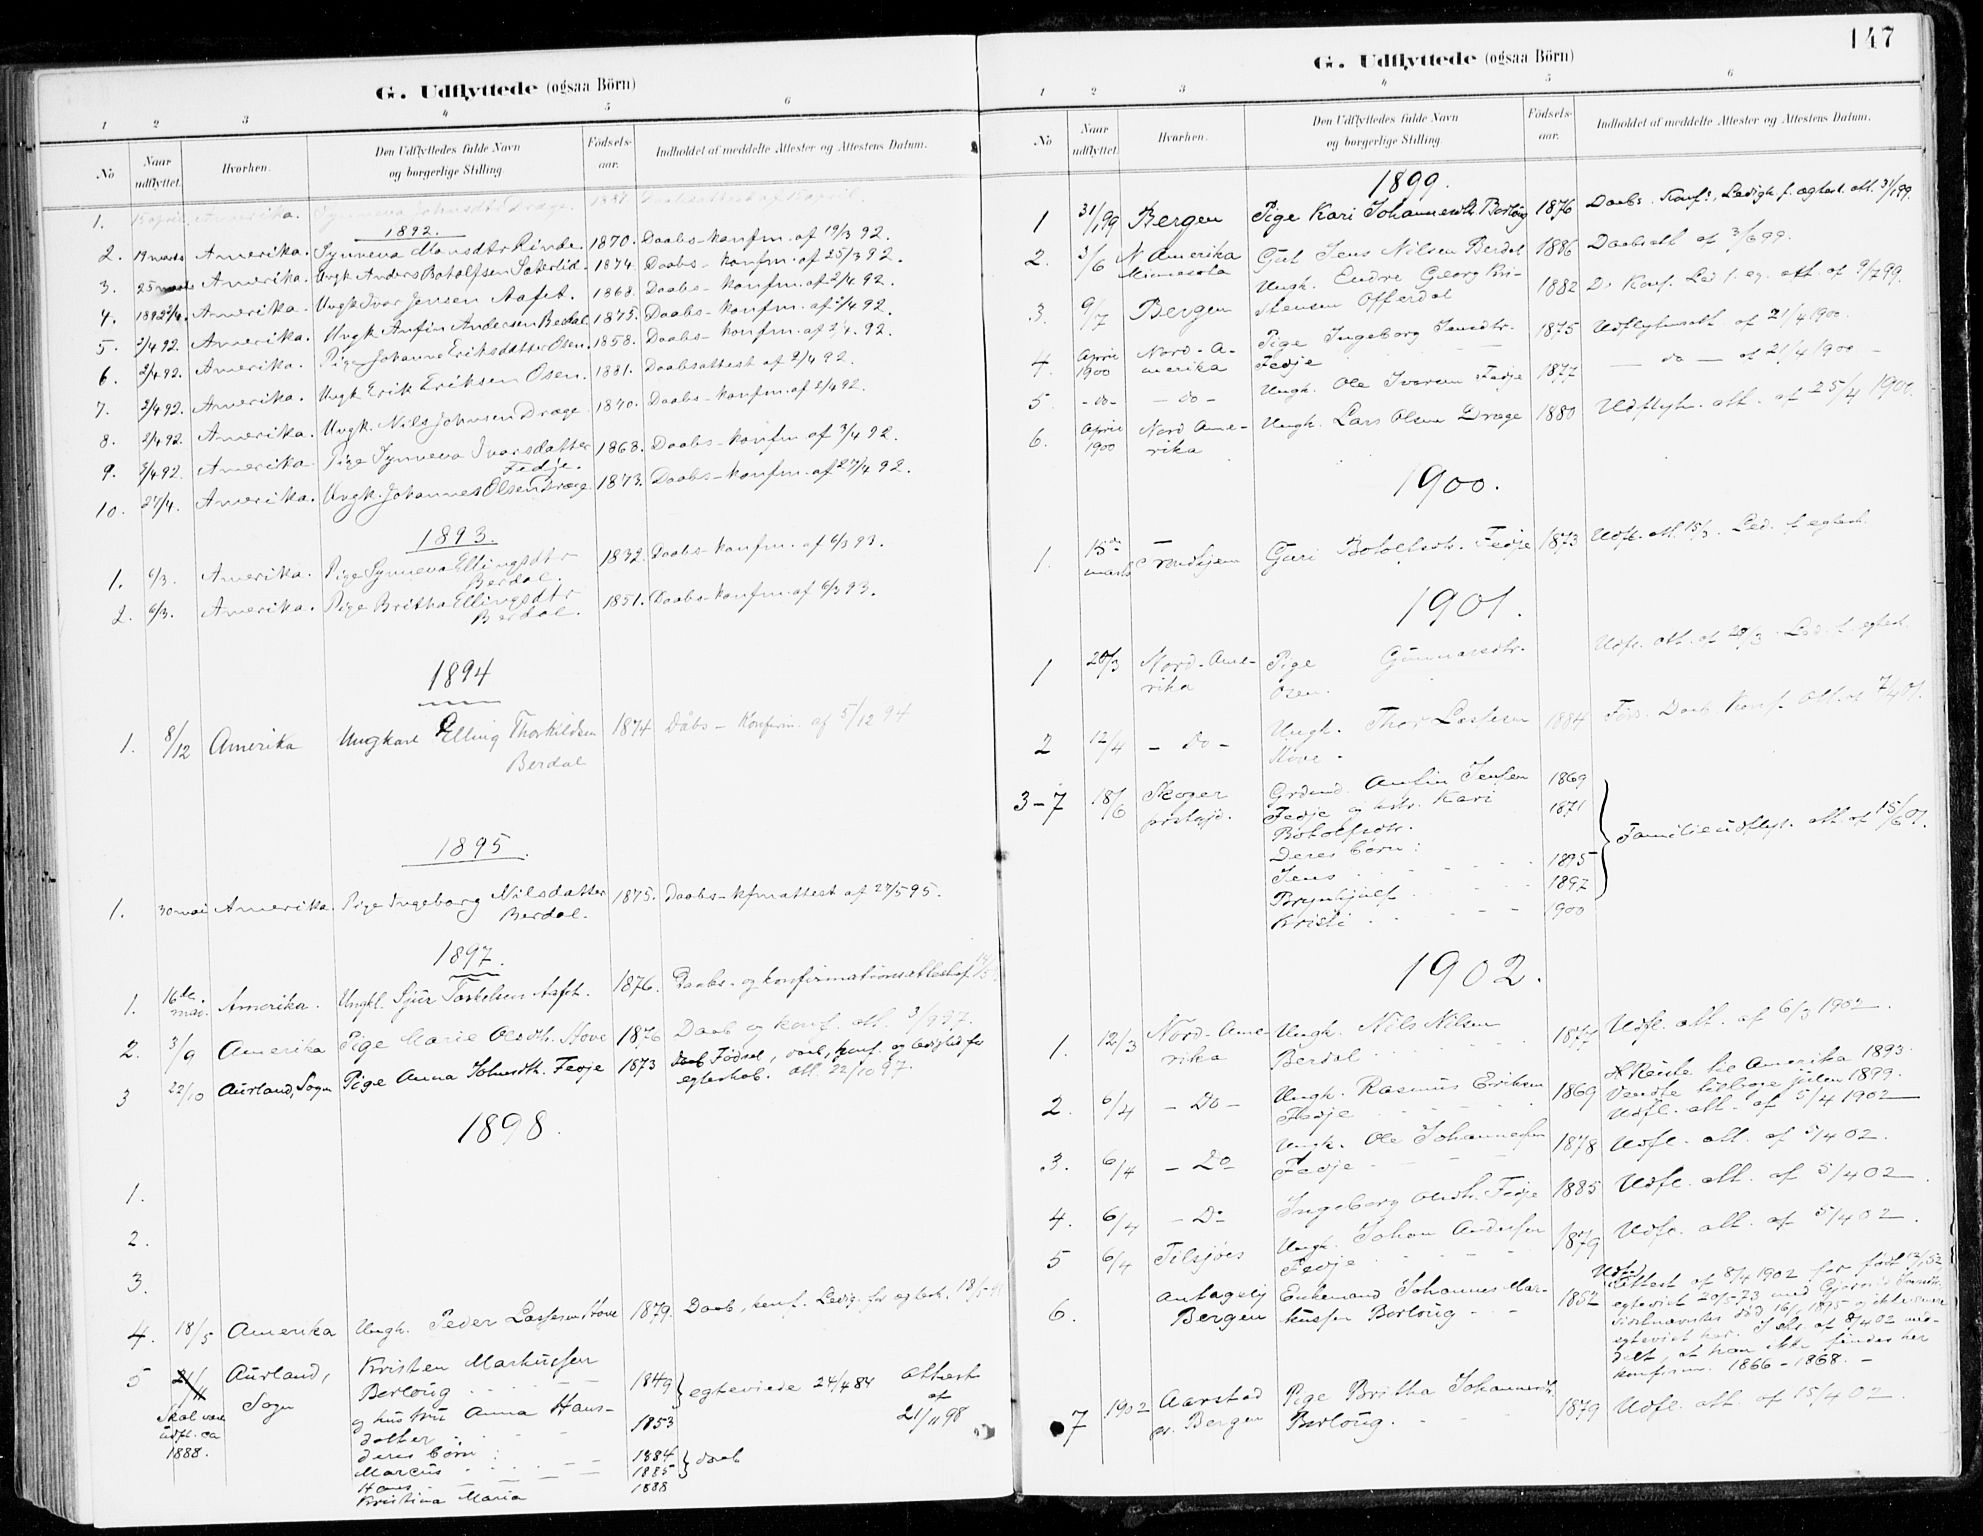 G. Udflyttede (ogsaa Börn)
1 2 3 4 5 6
No Naar udflyttet. Hvorhen. Den Udflyttedes fulde Navn og borgerlige Stilling Fødselsaar. Indholdet af meddelte Attester og Attestens Datum.
1. 15 april Amerika. Synneva Johnsdtr Dræge. Daabsattest af 15 april.
1892.
2. 19 marts Amerika. Synneva Monsdtr Rinde. 1870. Daabs-konfm. af 19/3 92.
3. 25 marts Amerika. Ungk Anders Botolfsen 1874. Daabs-konfm. af 25/3 92.
4. 1892 2/4. Amerika. Ungk Ivar Jensen Aafet. 1868. Daabs-konfm. af 2/4 92.
5. 2/4 92. Amerika. Ungk Anfin Andersen Berdal. 1875. Daabs-konfm. af 2/4 92.
6. 2/4 92. Amerika. Pige Johanne Eriksdatter Osen. 1858. Daabs-konfm. af 2/4 92.
7. 2/4 92. Amerika. Ungk Erik Eriksen Osen. 1881. Daabsattest af 2/4 92.
8. 2/4 92. Amerika. Ungk. Nils Johnsen Dræge 1870. Daabs-konfm. af 2/4 92.
9. 3/4 92. Amerika. Pige Synneva Ivarsdatter 1868. Daabs-konfm. af 3/4 92.
Fedje.
10. 27/4. Amerika. Ungk. Johannes Olsen Dræge 1873. Daabs-konfm. af 27/4 92.
1893.
1. 6/3. Amerika. Pige Synneva Ellingsdtr 1832. Daabs-konfm. af 6/3 93.
Berdal.
2. 6/3. Amerika. Pige Britha Ellingsdtr 1851. Daabs-konfm. af 6/3 93.
Berdal.
1894
1. 8/12 Amerika Ungkarl Elling Thorkildsen 1874 Dåbs-Konfirm. af 5/12 94
Berdal
1895.
1. 30 mai Amerika. Pige Ingeborg Nilsdatter 1875. Daabs-kfmattest af 27/5 95.
Berdal.
1897.
1. 16de mai. Amerika. Ungkl. Sjur Torkelsen Aafet. 1876. Daabs- og konfirmationsattest af
2. 3/9 Amerika Pige Marie Olsdtr. Hove 1876 Daab og konf. att. 3/9 97.
3 22/10 Aurland, Sogn Pige Anna Johnsdtr. Fedje 1873 Fødsel, daab, konf. og ledighed for
egteskab. att. 22/10 97.
1898.
1.
2.
3.
4. 18/5 Amerika Ungk. Peder Lassesen Hove 1879. Daab, konf. Ledig. for egtesk. 18/5 98
5 21/11 Aurland, Kristen Markussen
Skal være Sogn Berloug 1849 egteviede 24/4 84 attest
udfl. ca og hustru Anna Hans- af
1888. datter 1853 21/11 98
deres børn:
Marcus 1884 daab
Hans 1885
Kristina Maria 1888
147
G. Udflyttede (ogsaa Börn)
1 2 3 4 5 6
No Naar udflyttet. Hvorhen. Den Udflyttedes fulde Navn og borgerlige Stilling. Fødselsaar. Indholdet af meddelte Attester og Attestens Datum.
1899.
1 31/1 99 Bergen Pige Kari Johannesdtr. Berloug 1876 Daabs. Konf., Ledigh. f. egtesk. att. 31/1 99.
2. 3/6 N. Amerika Gut Jens Nilsen Berdal 1886 Daabsatt. af 3/6 99.
Minnesota
3. 9/7 Bergen Ungk. Endre Georg Kri- 1882 D. Konf. Led. f. eg. att. af 9/7 99.
stensen Offerdal
4. April 1900 Nord-A- Pige Ingeborg Jensdtr. 1875 Udflytnatt. af 21/4 1900.
merika Fedje
5. - do - - do - Ungk. Ole Ivarsen Fedje 1877 - do - af 21/4 1900 -
6. April 1900 Nord Ame- Ungk. Lars Olsen Dræge 1880 Udflytn. att. af 25/4 1900.
rika
1900.
1. 15de marts Trondhjem Guri Botolfsdtr. Fedje 1873 Udfl. att. 15/3. Led. f. egtesk.
1901.
1 20/3 Nord-Ame- Pige Gunnarsdtr. Udfl. att. af 20/3. Led. f. egtesk.
rika Osen.
2 12/4 - Do - Ungk. Thor Lassesen 1884 Føds. Daab. Konf. Att. af 7/4 01.
Hove.
3-7 18/6 Skoger Grdmd. Anfin Jensen 1869
prstgjd. Fedje og hstr. Kari 1871
Botolfsdtr. Familieudflyt. att. af 15/6 01.
Deres børn:
Jens 1895
Brynhjulf 1897
Kristi 1900
1902.
1. 12/3 Nord-Ame- Ungk. Nils Nilsen 1877 Udfl. att. af 6/3 1902.
rika Berdal
2. 6/4 - Do - Ungk. Rasmus Eriksen 1869 Reiste til Amerika 1893.
Fedje Vendte tilbage julen 1899.
Udfl. att. af 5/4 1902
3. 6/4 - Do Ungk. Ole Johannessen 1878 Udfl. att. af 5/4 02.
Fedje
4. 6/4 - Do Ingeborg Olsdtr. Fedje 1885 Udfl. att. af 5/4 02
5 6/4 Tilsjøes Ungk. Johan Andersen 1879 Udfl. att. af 5/4 02.
Fedje
6. Antagelig Enkemand Johannes Mar- 1852 Attest af 8/4 1902 for født
Bergen kussen Berloug egteviet 20/5-73 med
død 16/1 1895 og ikke senere
egteviet her. I skr. af 8/4 02 med-
delt, at han ikke findes her
konfirm. 1866-1868. -
7 1902 Aarstad Pige Britha Johannesdtr. 1879 Udfl. att. af 15/4 02.
pr. Bergen Berloug.